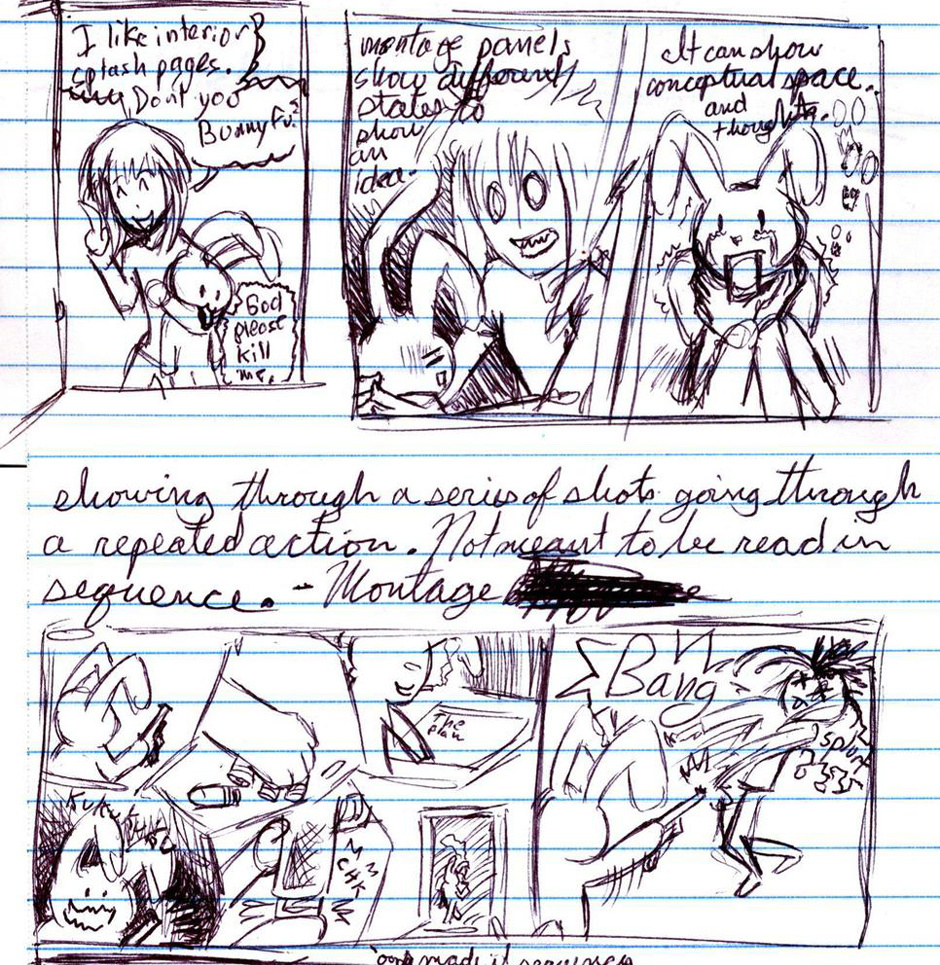 I like interior
splash pages.
Don't you
Bunny Fu?
God
please
kill
me.
montage panels
show different
states to
show
an
idea.
It can show
conceptual space.
and
thoughts.
showing through a series of shots going through
a repeated action. Not meant to be read in
sequence. - Montage
The
Plan
Bang
Kuku
made it